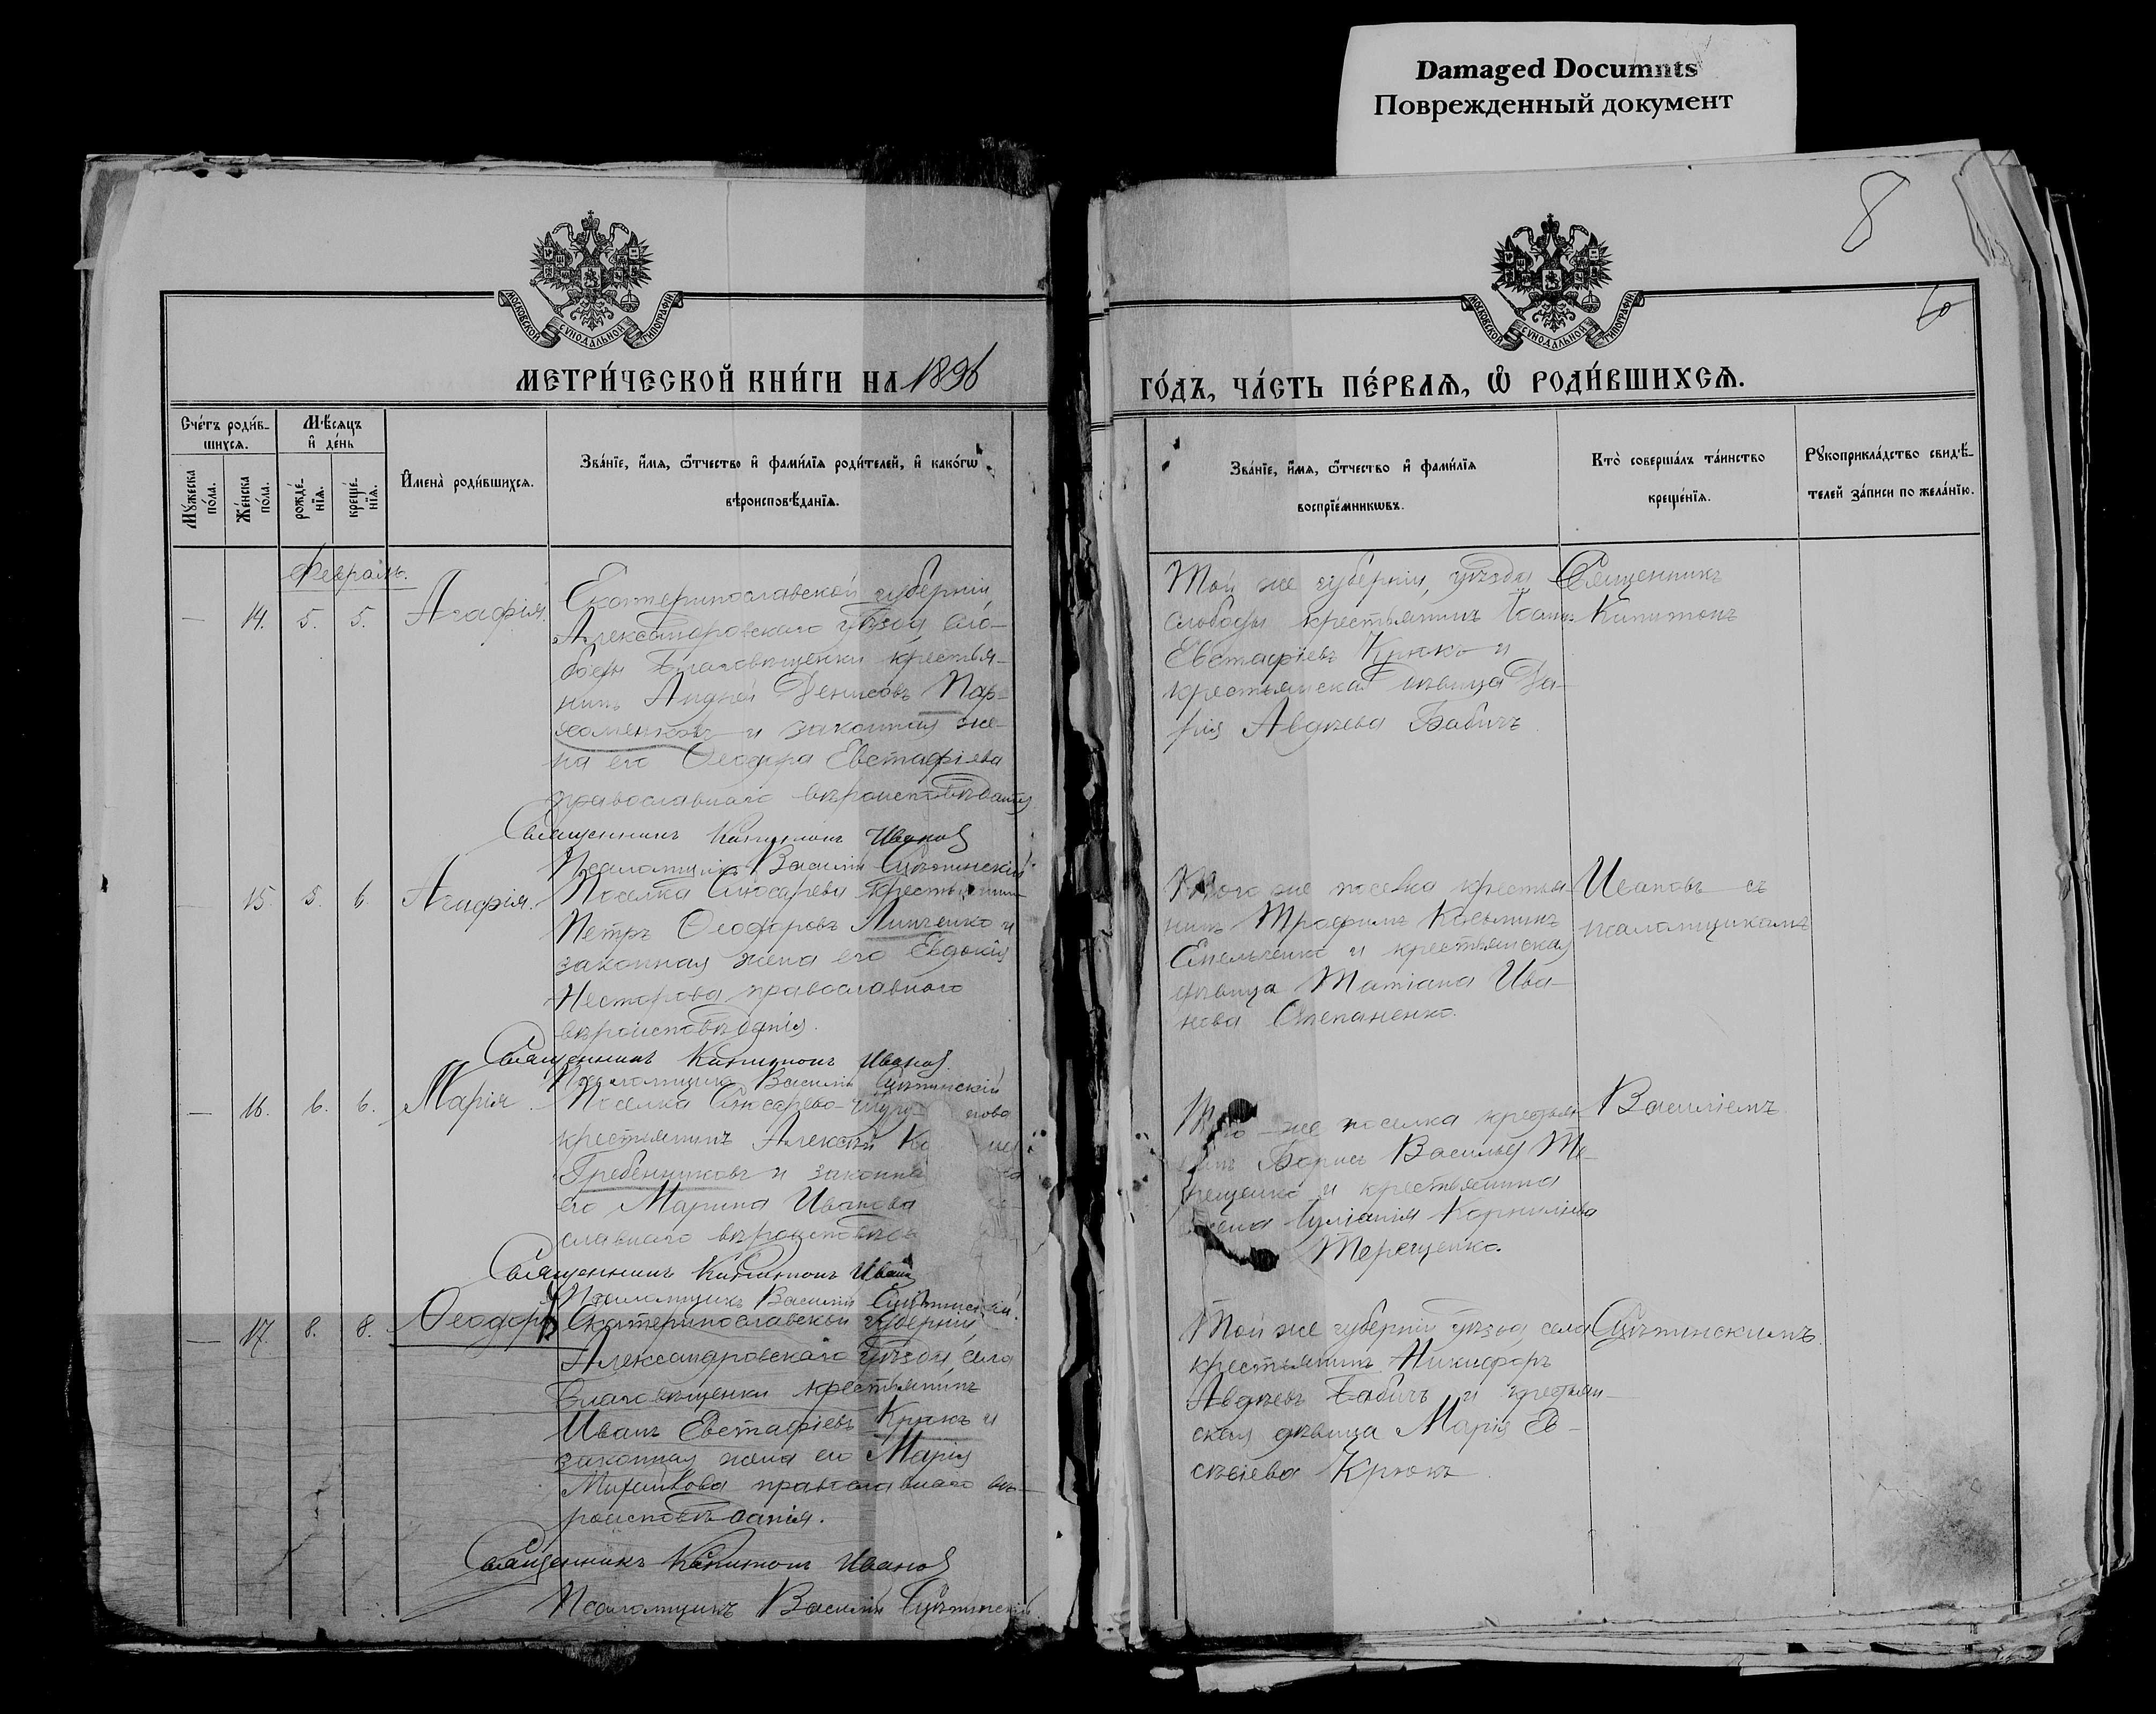 Damaged Documnts
Поврежденный документ
8
6
МОСКОВСКОЙ СѴНОДАЛЬНОЙ ТИПОГРАФІИ
МОСКОВСКОЙ СѴНОДАЛЬНОЙ ТИПОГРАФІИ
МЕТРИ́ЧЕСКОЙ КНИ́ГИ НА 1896
ГО́ДЪ, ЧА́СТЬ ПЕ́РВАѦ, Ѽ РОДИ́ВШИХСѦ.
Сче́тъ роди́в-
шихсѧ.
Мѣ́сѧцъ
и҆ де́нь
Мꙋ́жеска
по́ла.
Же́нска
по́ла.
рожде́-
нїѧ.
креще́-
нїѧ.
И҆мена̀ роди́вшихсѧ.
Зва́нїе, и҆́мѧ, ѻ҆́тчество и҆ фами́лїѧ роди́телей, и҆ како́гѡ
вѣроисповѣ́данїѧ.
Зва́нїе, и҆́мѧ, ѻ҆́тчество и҆ фами́лїѧ
воспрїе́мникѡвъ.
Кто̀ соверша́лъ та́инство
креще́нїѧ.
Рꙋкоприкла́дство свидѣ́-
телей за́писи по жела́нїю.
Февраль.
— 14. 5. 5. Агафія.
Екатеринославской губерніи
Александровскаго уѣзда сло-
боды Благовѣщенки крестья-
нинъ Андрей Денисовъ Пар-
хоменковъ и законная же-
на его Ѳеодора Евстафіева
православнаго вѣроисповѣданія
Священникъ Капитонъ Иванов
Псаломщикъ Василій Сцѣпинскій
Той же губерніи, уѣзда
слободы крестьянинъ Іоаннъ
Евстафіевъ Крюкъ и
крестьянская дѣвица Да-
рія Авдѣева Бабичъ
Священникъ
Капитонъ
15. 5. 6. Агафія.
Поселка Слюсарева крестьянинъ
Петръ Ѳеодоровъ Линченко и
законная жена его Евдокія
Несторова православнаго
вѣроисповѣданія.
Священникъ Капитонъ Иванов
Псаломщикъ Василій Сцѣпинскій
того же поселка крестья-
нинъ Трофимъ Косьминъ
Емельченко и крестьянская
дѣвица Татіана Ива-
нова Степаненко.
Ивановъ съ
псаломщикомъ
— 16. 6. 6. Марія
Поселка Слюсарево-
крестьянинъ Алексѣй
Гребенниковъ и законна
его Марина Иванова
славнаго вѣроисповѣд
Священникъ Капитонъ Иван
Псаломщикъ Василій Сцѣпинскій
же поселка крестьян
Борисъ Васильевъ Те-
рещенко и крестьянина
жена Іуліанія Корниліева
Терещенко.
Василіемъ
— 17. 8. 8. Ѳеодора
Екатеринославской губерніи
Александровскаго уѣзда села
Благовѣщенки крестьянинъ
Иванъ Евстафіевъ Крюкъ и
законная жена его Марія
Михайлова православнаго вѣ-
роисповѣданія.
Священникъ Капитонъ Иванов
Псаломщикъ Василій Сцѣпинскій
Той же губерніи уѣзда села
крестьянинъ Никифоръ
Авдѣевъ Бабичъ и крестьян-
ская дѣвица Марія Ев-
сѣвіева Крюкъ
Сцѣпинскимъ.